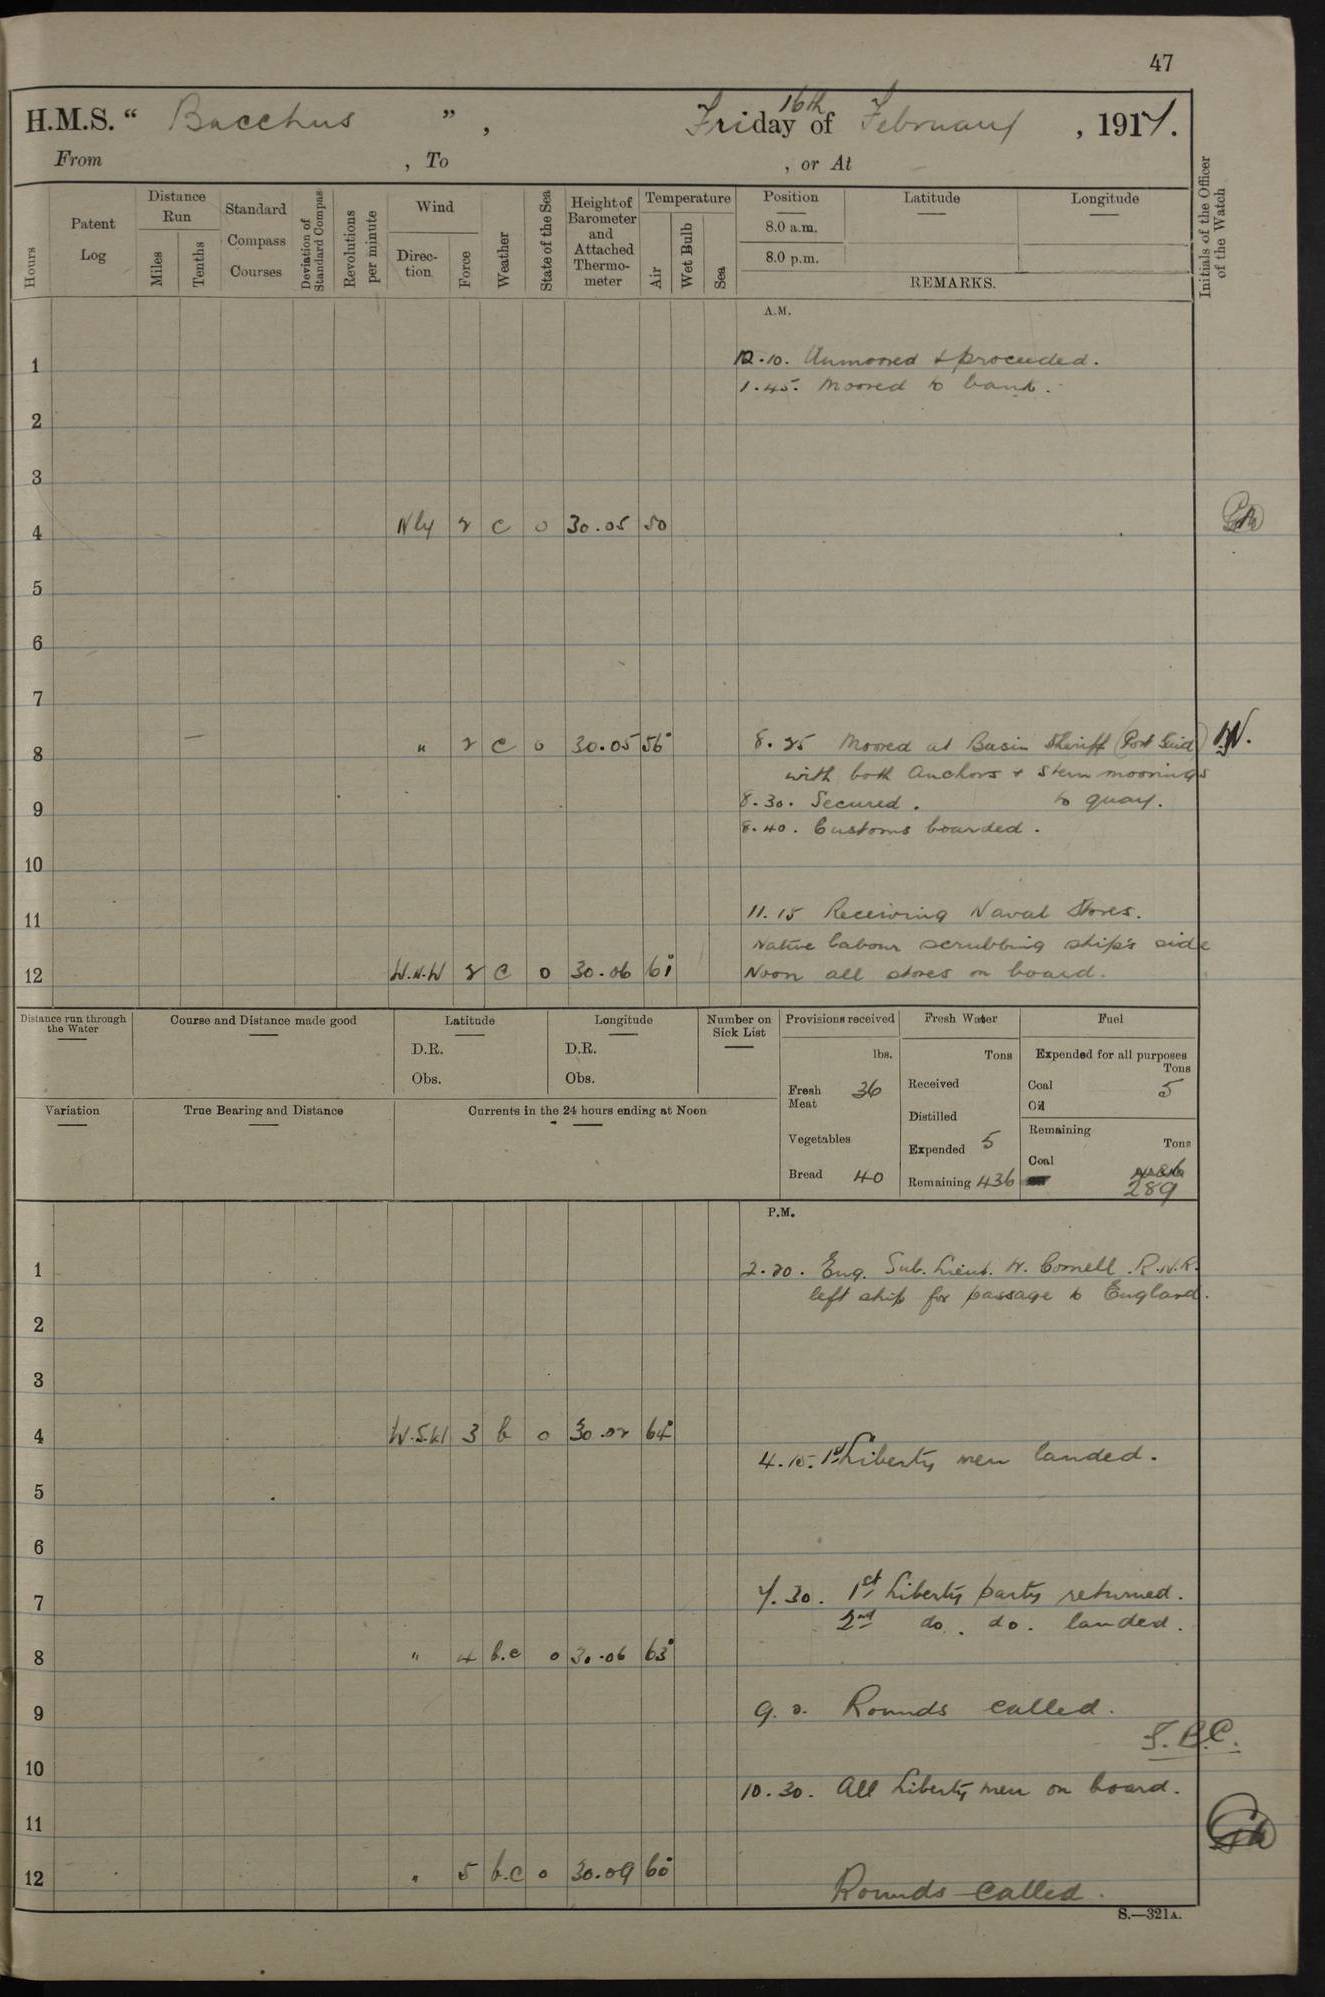 47
H.M.S. " Bacchus ", Friday 16th of February, 1917.
From , To , or At
Hours
Patent Log
Distance Run
Miles
Tenths
Standard Compass Courses
Deviation of Standard Compass
Revolutions per minute
Wind
Direction
Force
Weather
State of the Sea
Height of Barometer and Attached Thermometer
Temperature
Air
Wet Bulb
Sea
Position
8.0 a.m.
8.0 p.m.
Latitude
Longitude
REMARKS.
Initials of the Officer of the Watch
A.M.
12.10. Unmoored & proceeded.
1
1.45. Moored to bank.
2
3
4 Nly 2 c o 30.05 50
5
6
7
8 " 2 c o 30.05 56° 8.25 Moored at Basin Sheriff (Port Said)
with both Anchors & Stern moorings
8.30. Secured. to quay.
9
8.40. Customs boarded.
10
11 11.15 Receiving Naval Stores.
Native labour scrubbing ship's side
12 W.N.W 2 c o 30.06 61° Noon all stores on board.
Distance run through the Water
Course and Distance made good
Latitude
D.R.
Obs.
Longitude
D.R.
Obs.
Number on Sick List
Provisions received
lbs.
Fresh Meat 36
Vegetables
Bread 40
Fresh Water
Tons
Received
Distilled
Expended 5
Remaining 436
Fuel
Expended for all purposes
Tons
Coal 5
Oil
Remaining
Tons
Coal
289
Variation
True Bearing and Distance
Currents in the 24 hours ending at Noon
P.M.
1 2.20. Eng. Sub. Lieut. W. Cornell R.N.R.
left ship for passage to England.
2
3
4 W.S.W 3 b o 30.02 64°
4.15. 1st Liberty men landed.
5
6
7 7.30. 1st Liberty party returned.
2nd do. do. landed.
8 " 4 b.c o 30.06 63°
9 9.0. Rounds called.
10
10.30. All Liberty men on board.
11
12 " 5 b.c o 30.09 60°
Rounds called.
S.—321A.